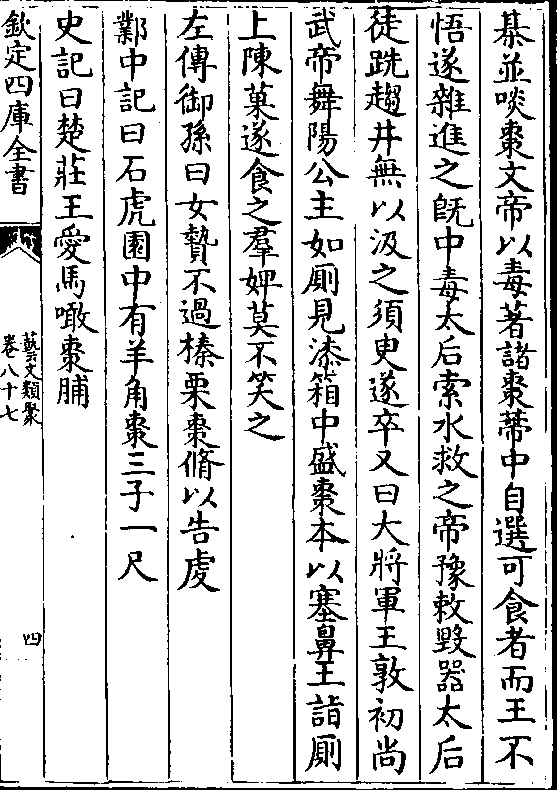 棊並啖棗文帝以毒著諸棗蔕中自選可食者而王不
悟遂雜進之旣中毒太后索水救之帝豫敕毀器太后
徒跣趨井無以汲之須臾遂卒又曰大將軍王敦初尚
武帝舞陽公主如厠見漆箱中盛棗本以塞鼻王詣厠
上陳菓遂食之羣婢莫不笑之
左傳御孫曰女贄不過榛栗棗脩以告虔
鄴中記曰石虎園中有羊角棗三子一尺
史記曰楚莊王愛馬噉棗脯
欽定四庫全書
藝文類聚
卷八十七
四